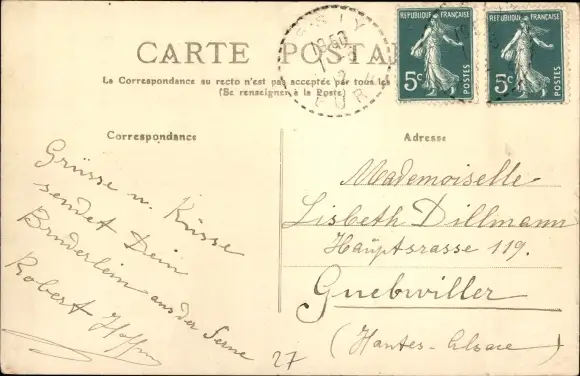 CARTE POSTAL
La Correspondance au recto n'est pas acceptée par tous les
(Se renseigner à la Poste)
RÉPUBLIQUE FRANÇAISE
5c
POSTES
RÉPUBLIQUE FRANÇAISE
5c
POSTES
Correspondance
Grüsse u. Küsse
sendet Dein
Brüderlein aus der Ferne
Robert
Adresse
Mademoiselle
Lisbeth Dillmann
Hauptsrasse 119.
Guebwiller
(Hautes-Alsace)
27